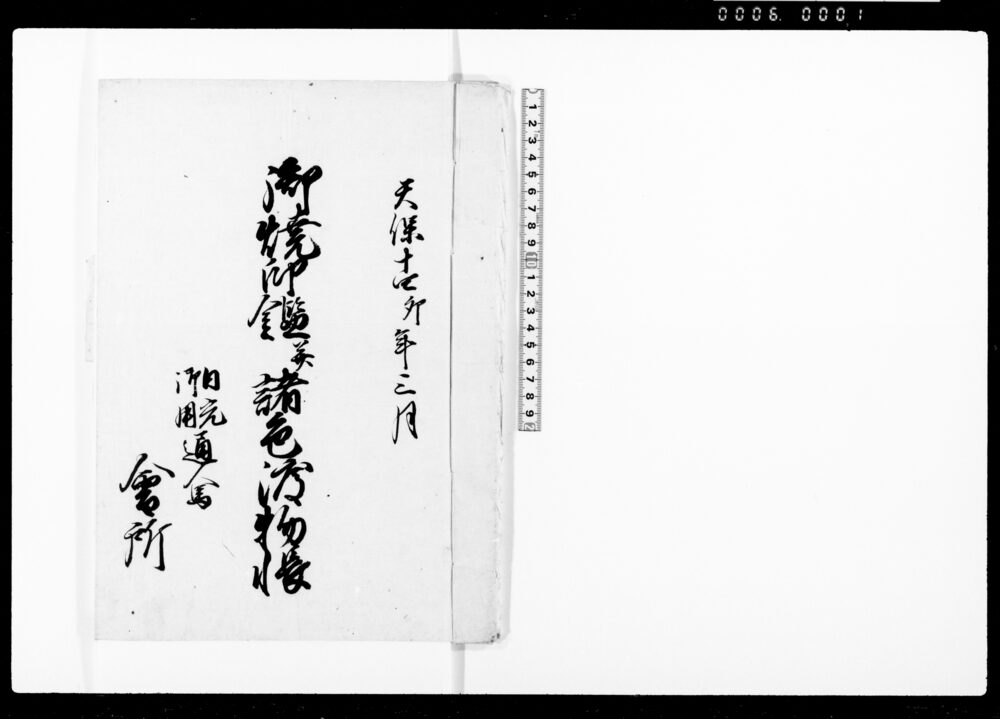 0006 0001
天保十四卯年三月
御焼印鑑并諸色渡物帳
日光
御用
通馬
會所
1 2 3 4 5 6 7 8 9 10 1 2 3 4 5 6 7 8 9 2